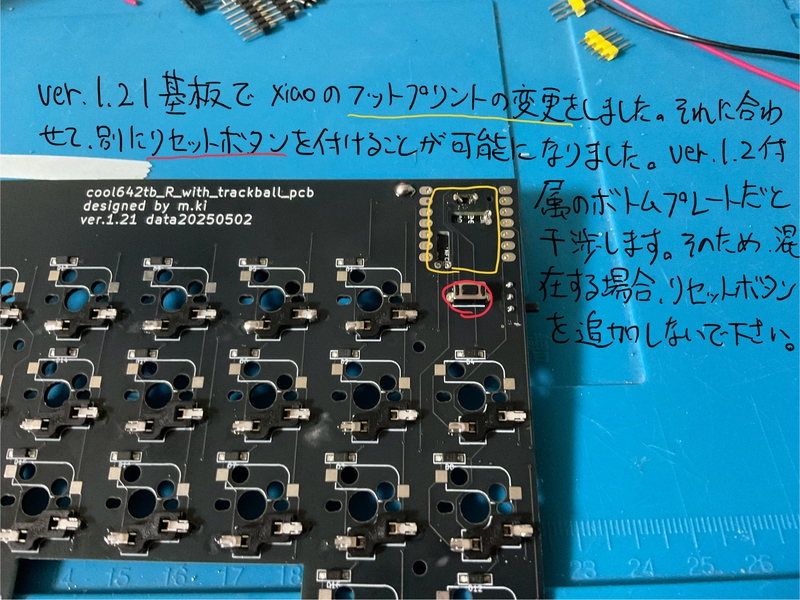 ver.1.21基板で xiaoのフットプリントの変更をしました。それに合わ
せて、別にリセットボタンを付けることが可能になりました。ver.1.2付
属のボトムプレートだと
干渉します。そのため、混
在する場合、リセットボタン
を追加しないで下さい。
cool642tb_R_with_trackball_pcb
designed by m.ki
ver.1.21 data20250502
14 15 16 17 18 23 24 25 26